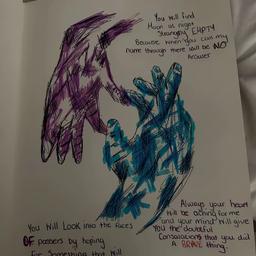 You will find
Moon as night
Strangley EMPTY
Because when you call my
name through there will be NO
Answer
Always your heart
Will be aching for me
and your Mind Will give
You the doubtful
Consolations that you did
A BRAVE thing.
You Will Look into the faces
OF passers by hoping
For Something that Will